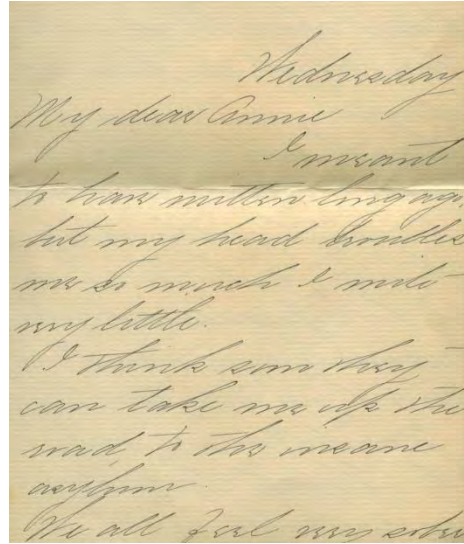 Wednesday
My dear Annie
I meant
to have written long ago,
but my head troubles
me so much I write
very little.
I think soon they
can take me up the
road to the insane
asylum.
We all feel very sober